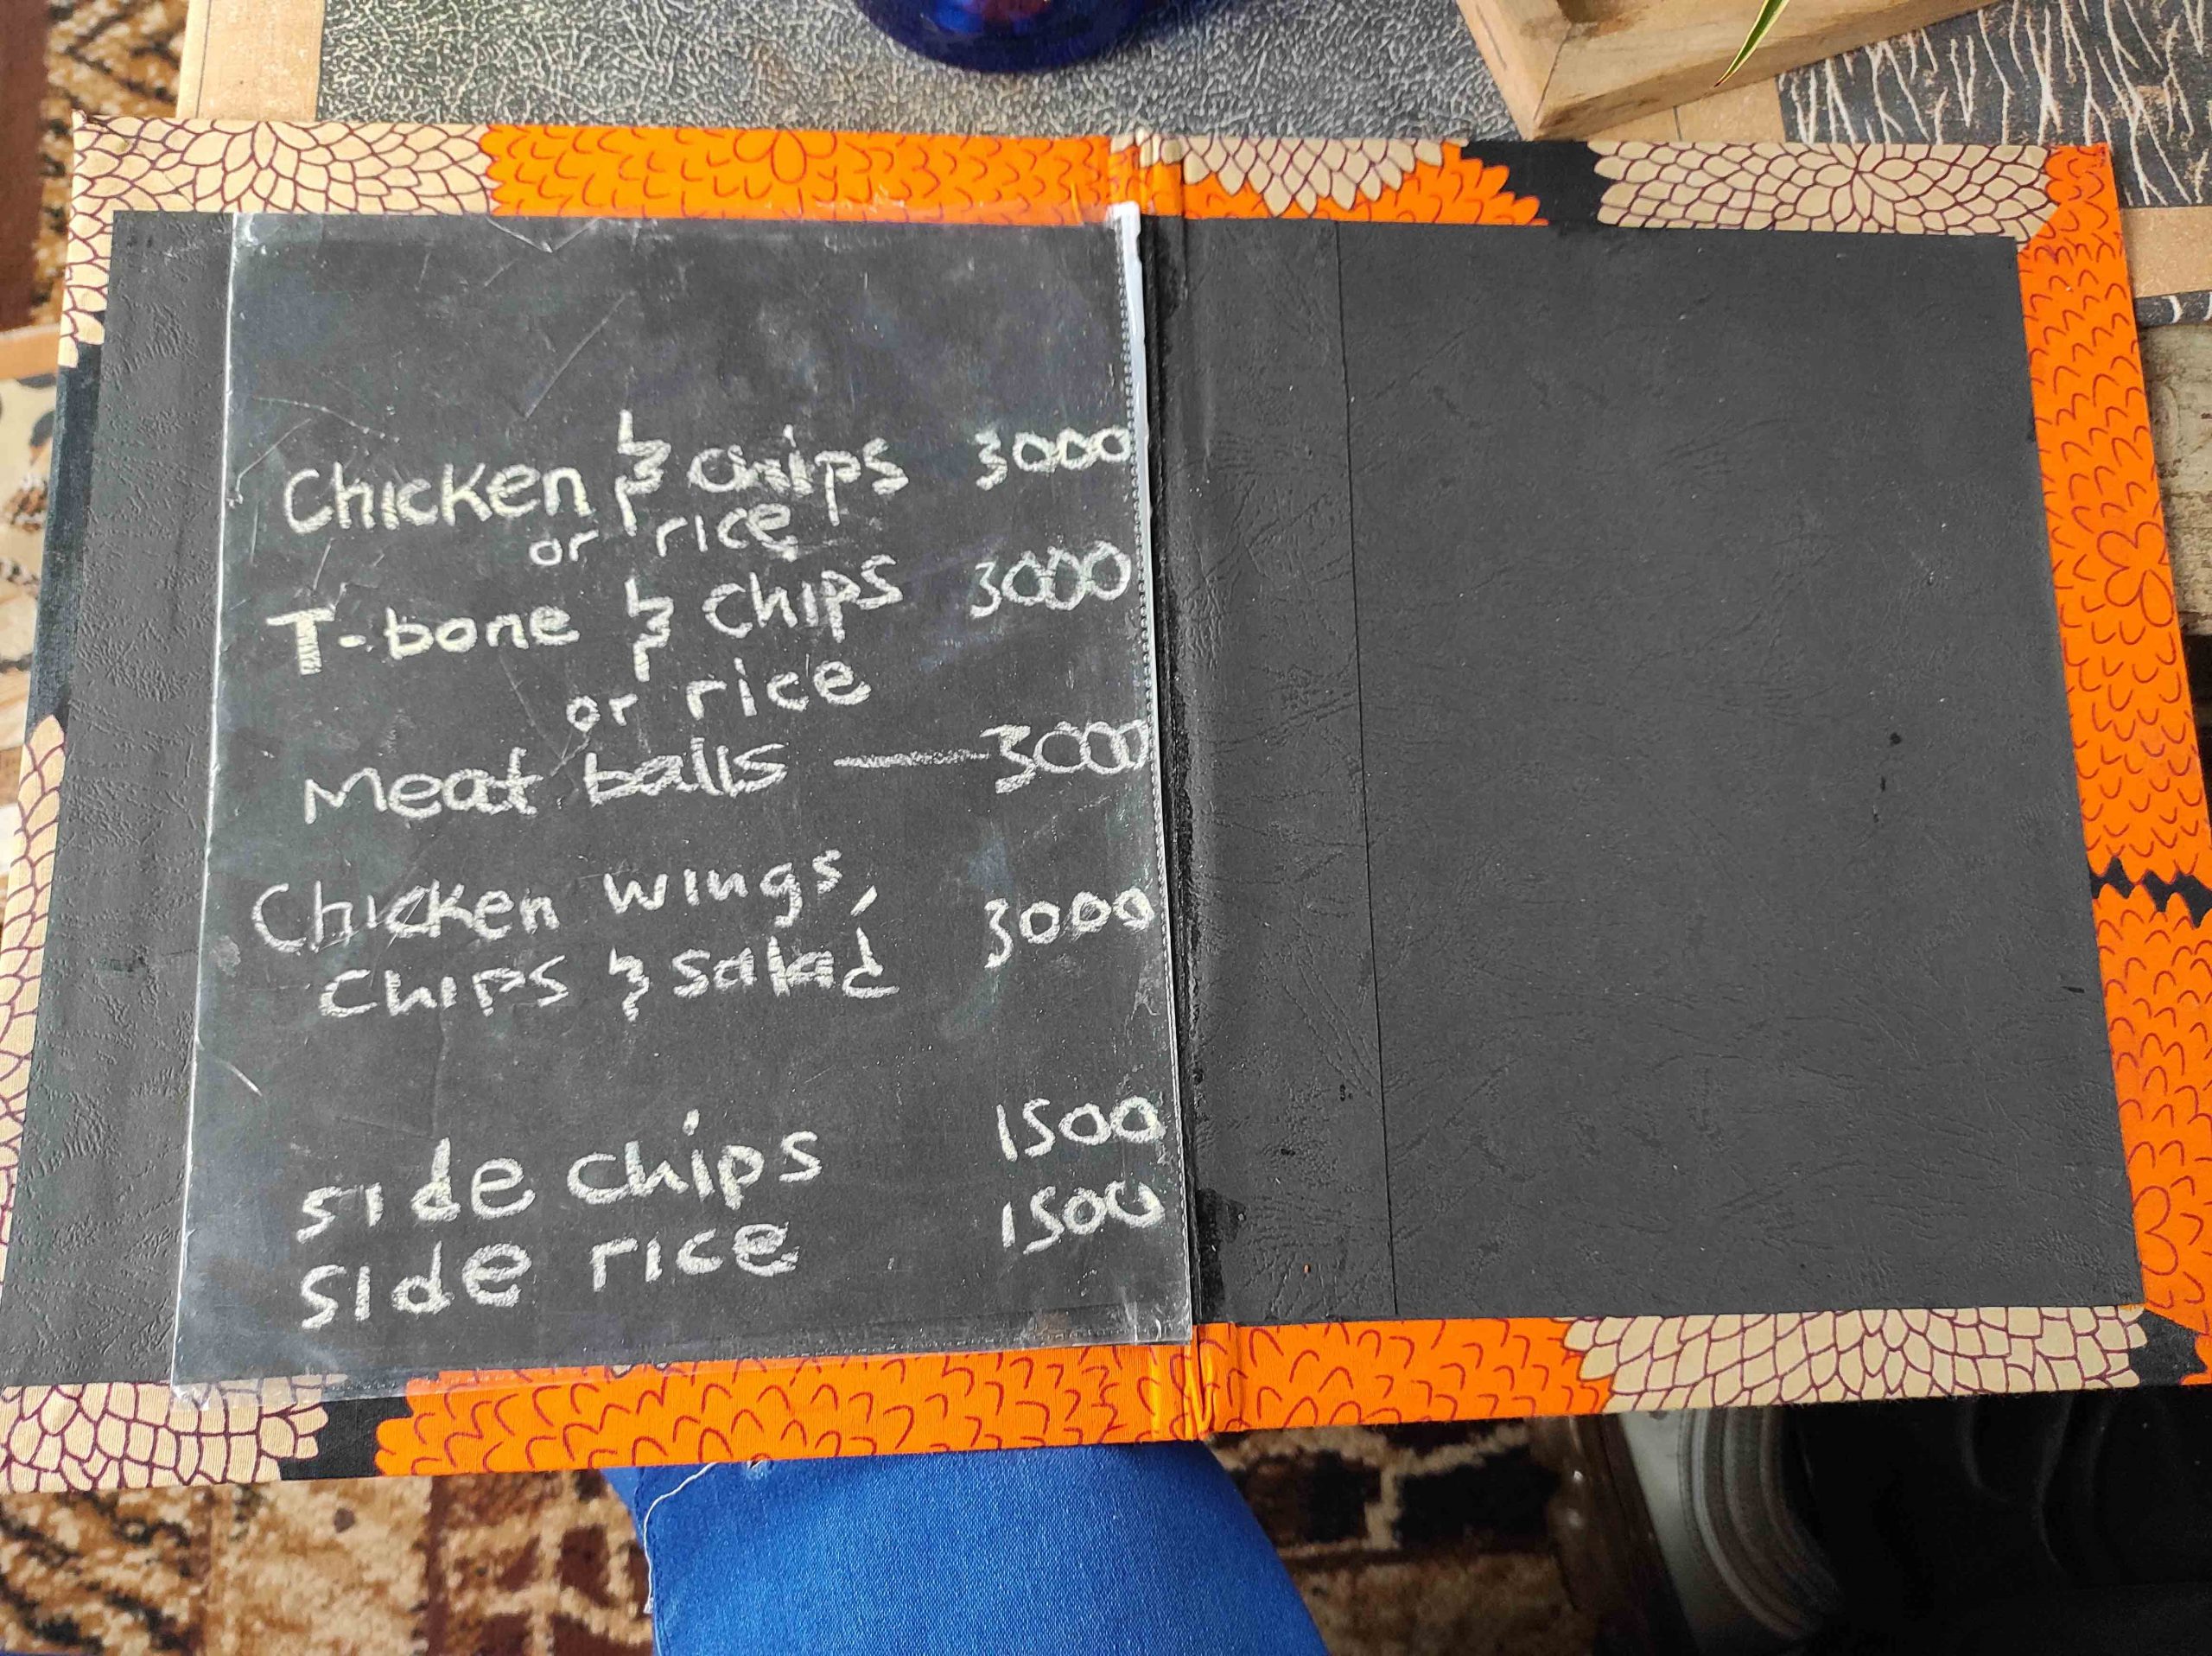 Chicken & Chips 3000
or rice
T-bone & Chips 3000
or rice
Meat balls — 3000
Chicken wings,
Chips & salad 3000
side chips 1500
side rice 1500